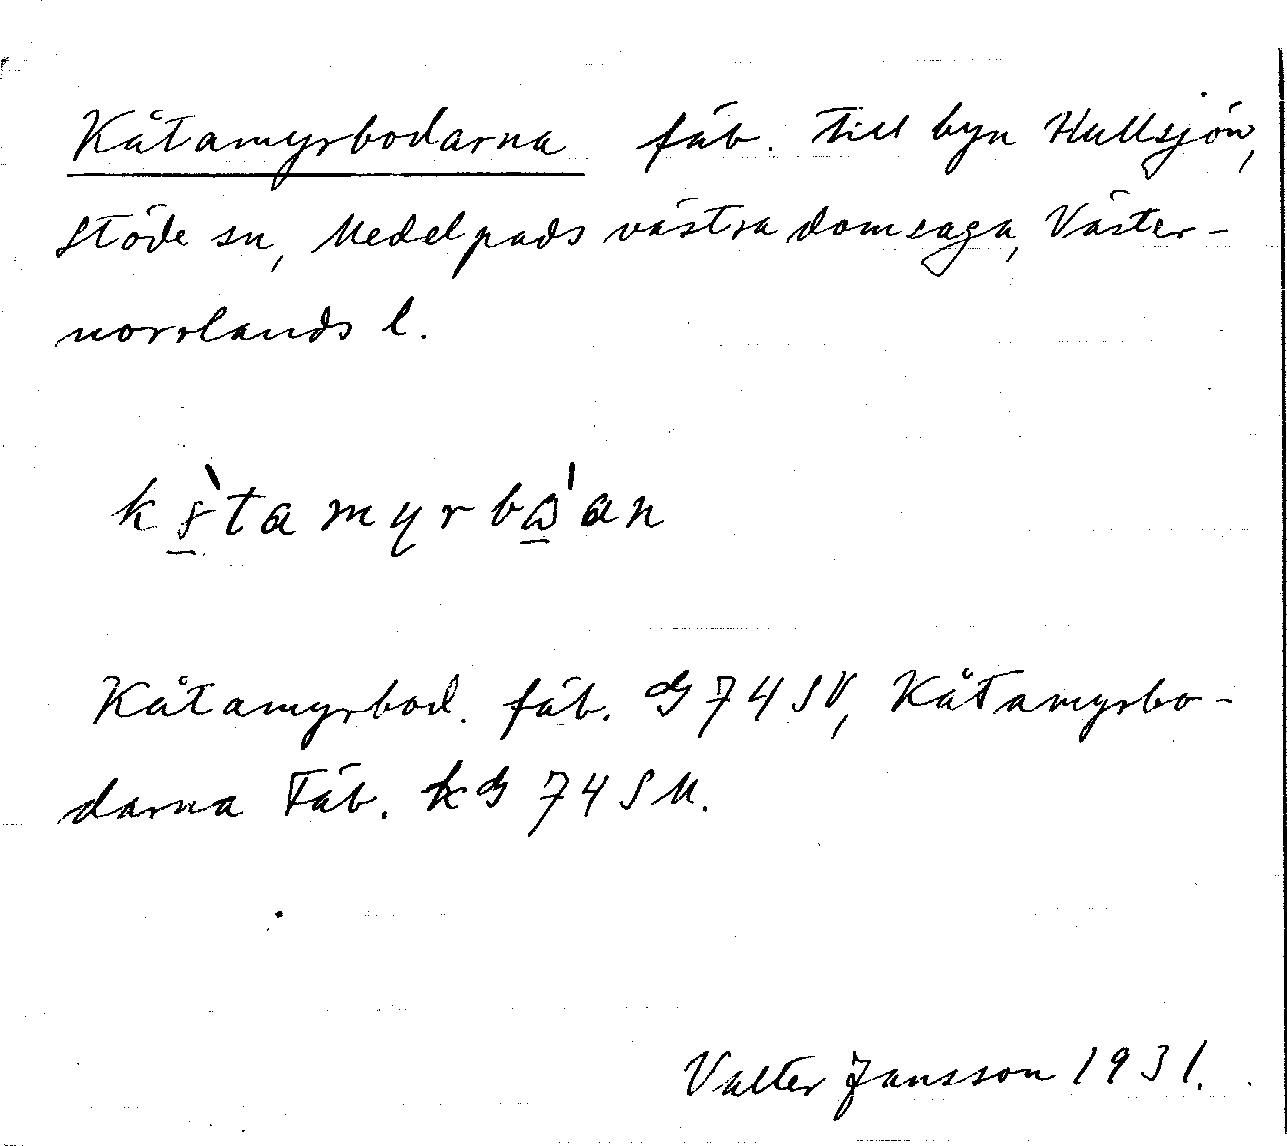 Kåtamyrbodarna fäb. till byn Hullsjön,
Stöde sn, Medelpads västra domsaga, Väster-
norrlands l.
Kåtamyrbod. fäb. G 74 SV, Kåtamyrbo-
darna Fäb. kG 74 SM.
Valter Jansson 1931.